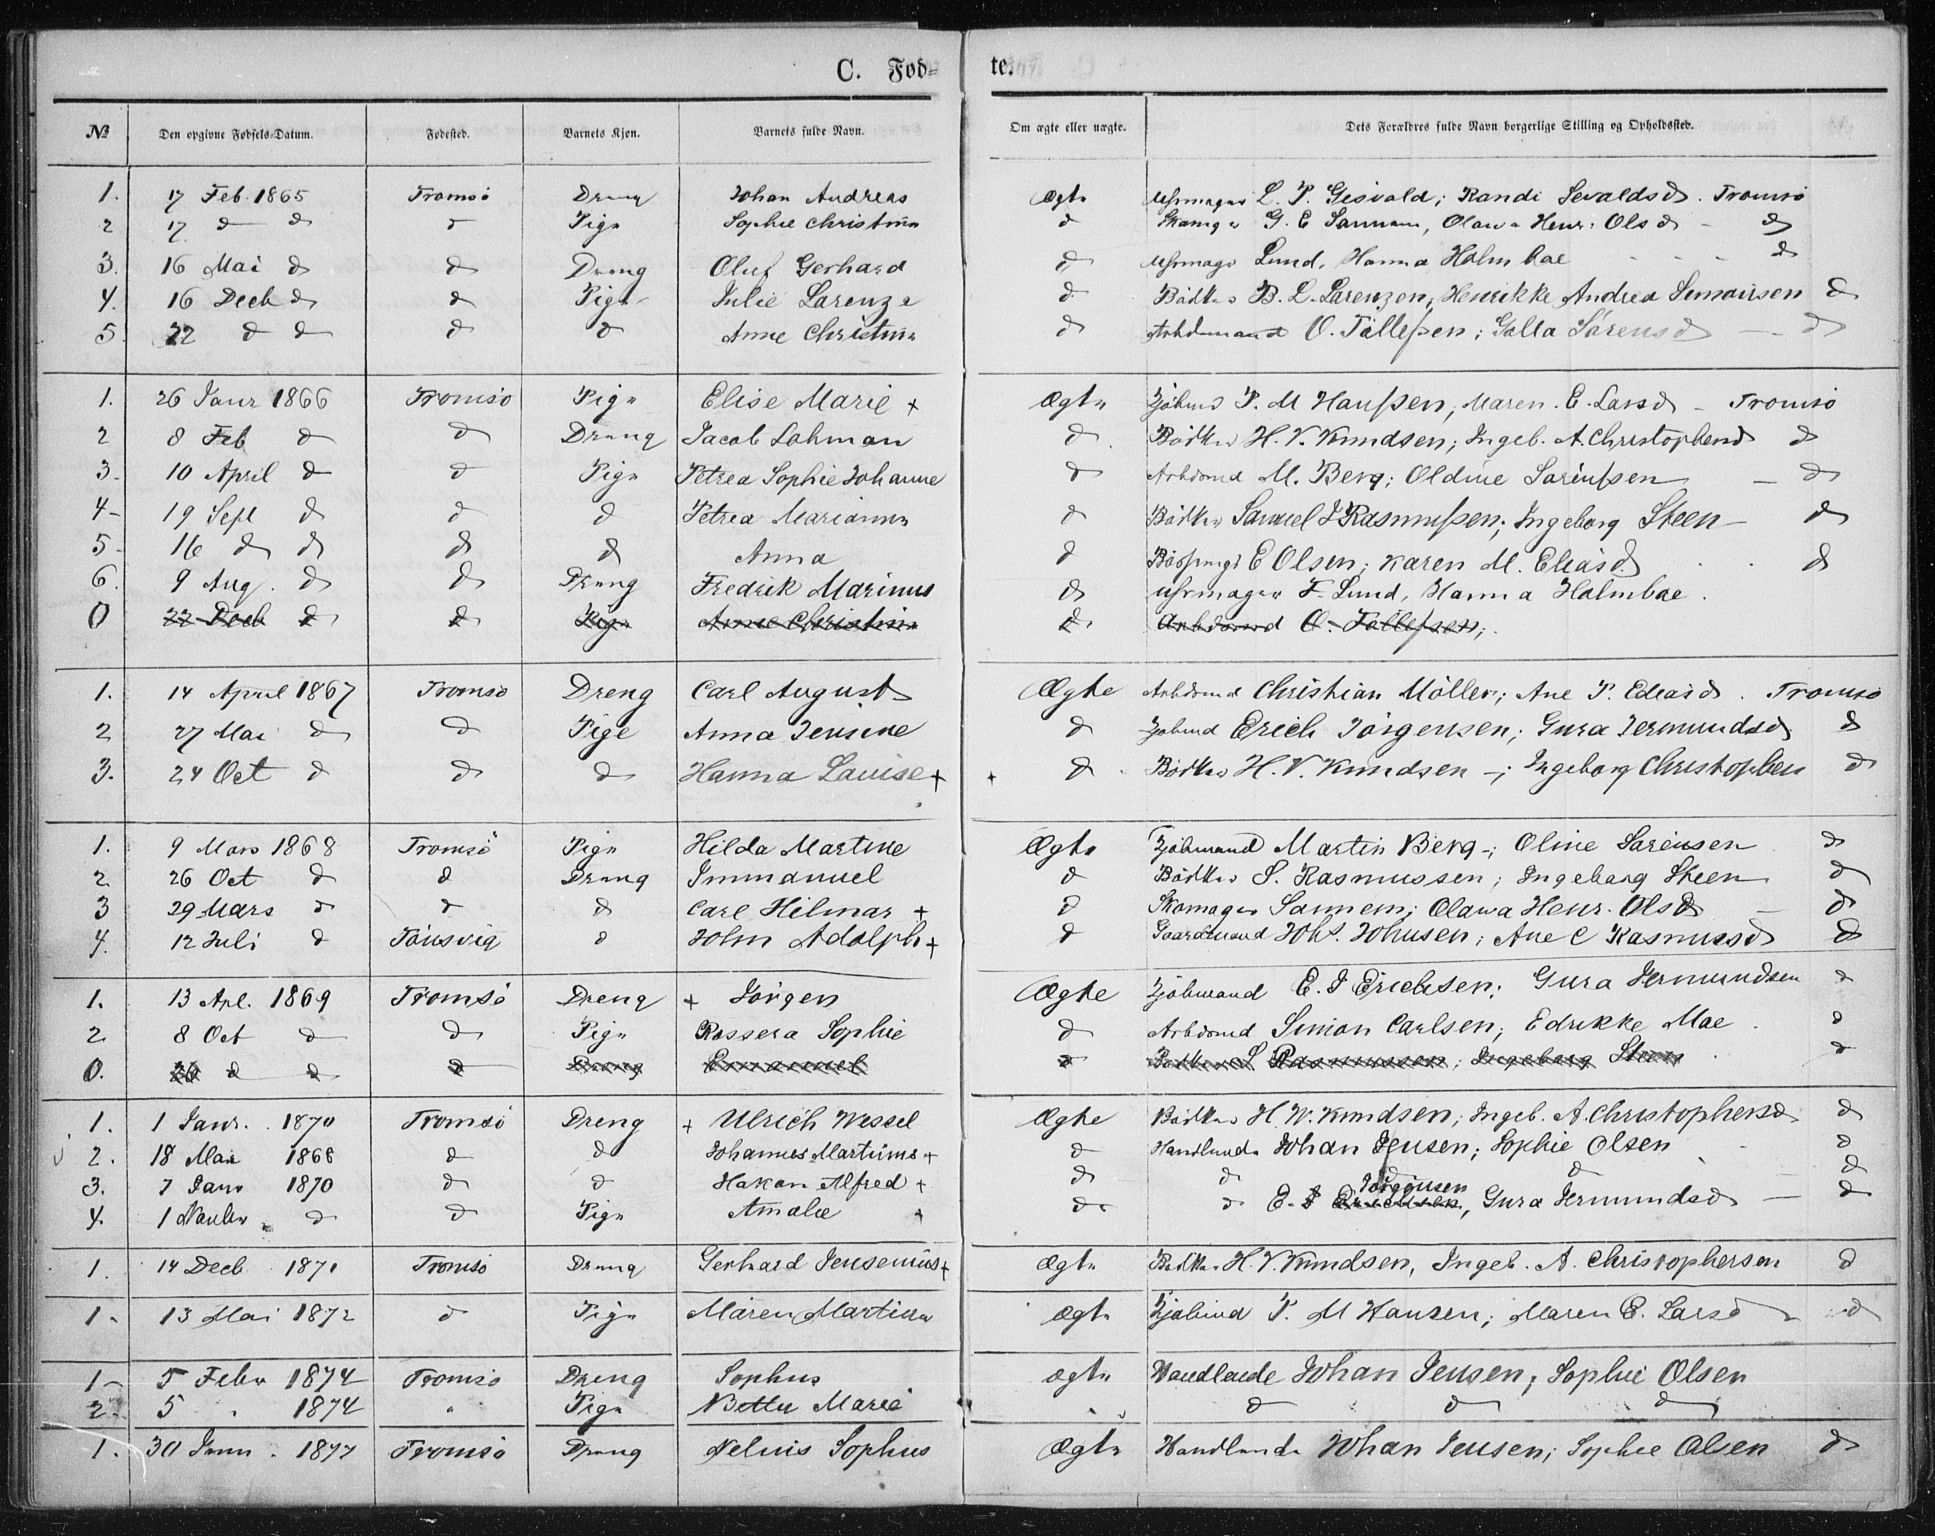 C. Fød- te.
№ Den opgivne Fødsels-Datum. Fødested. Barnets Kjøn. Barnets fulde Navn. Om ægte eller uægte. Dets Forældres fulde Navn borgerlige Stilling og Opholdssted.
1. 17 Feb. 1865 Tromsö Dreng Johan Andreas Ægte Uhrmager L. P. Gesvold; Randi Sevaldsd. Tromsö
2 17 d d d Pige Sophie Christine d G. E Sannem, Olava Henr: Olsd - d
3. 16 Mai d d Dreng Oluf Gerhard d Uhrmager Lund, Hanna Holmboe d
4. 16 Decb d d Pige Julie Lorenze d Bödker B. L. Lorenzen, Henrikke Andrea Simonsen d
5. 22 d d d d Anne Christine d Arbdsmand O. Tölleſsen; Golla Sörensd - d
1. 26 Janr 1866 Tromsö Pige Elise Marie + Ægte P. M Hanſsen, Maren E. Larsd - Tromsö
2 8 Feb d d Dreng Jacob Lohman d Bödker H. V. Knudsen; Ingeb. A. Christophersd d
3. 10 April d d Pige Petrea Sophie Johanne d Arbdsmd M. Berg; Oldine Sörenſsen - d
4- 19 Sept d d d Petrea Marianne d Bödker Samuel J Rasmuſsen; Ingeborg Steen - d
5- 16 d d d d Anna d E Olsen; Karen M. Eliasd d
6. 9 Aug. d d Dreng Fredrik Marinus d Uhrmager F. Lund, Hanna Holmboe.
0 22 Decb d d Pige Anne Christine d. Arbdsmd O. Tölleſsen;
1. 14 April 1867 Tromsö Dreng Carl August Ægte Arbdsmd Christian Möller; Ane P. Eleasd. Tromsö
2 27 Mai d d Pige Anna Jensine d Erich Jörgensen; Gura Jermundsd d
3. 24 Oct d d d Hanna Louise + + d. Bödker H. V. Knudsen -; Ingeborg Christophers d
1. 9 Mars 1868 Tromsö Pige Hilda Martine Ægte Martin Berg -; Oline Sörensen d
2. 26 Oct d d Dreng Immanuel d Bödker S. Rasmussen; Ingeborg Steen d
3 29 Mars d d d Carl Hilmar + d Skomager Sannem; Olava Henr. Olsd - d
4. 12 Juli d Tönsvig d John Adolph + d Gaardmand Johs. Johnsen; Ane C Rasmussd d
1. 13 Apl. 1869 Tromsö Dreng + Jörgen Ægte E. J Erichsen; Gura Jermundsen d
2. 8 Oct d d Pige Rossera Sophie d Arbdsmd Simon Carlsen; Edrikke Moe. d
0. 26 d d d Dreng Emanuel d Bödker S Rasmussen; Ingeborg Steen. d
1. 1 Janr. 1870 Tromsö Dreng + Ulrich Wessel Ægte Bödker H. W. Knudsen; Ingeb. A. Christophersd d
2. 18 Mai 1868 d d Johannes Martinus + d Handlende Johan Jensen; Sophie Olsen d
3. 7 Janr 1870 d d Hakon Alfred + d d d d d
Jörgensen
4. 1 Novbr. d d Pige Amalie + d d E. J Erichsen, Gura Jermundsd - d
1. 14 Decb 1871 Tromsö Dreng Gerhard Jensenius + Ægte Bödker H. V. Knudsen, Ingeb. A. Christophersen d
1. 13 Mai 1872 d Pige Maren Martine Ægte P. M Hansen; Maren E. Larsd d
1- 5 Febr 1874 Tromsö Dreng Sophus ægte Handlende Johan Jensen; Sophie Olsen
2. 5 " 1874 " Pige Better Marie " d d d
1. 30 Janr. 1877 Tromsö Dreng Nelius Sophus Ægte Handlende Johan Jensen; Sophie Olsen d